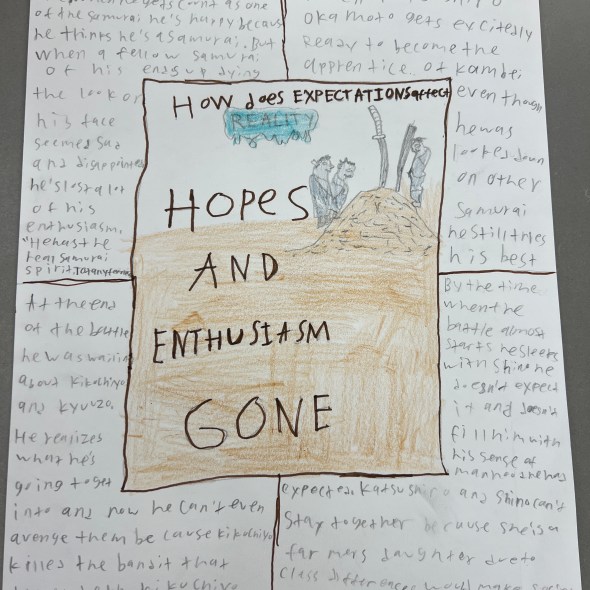 gets count as one
of the samurai he's happy becaus
he thinks he's a samurai. But
when a fellow samurai
of his ends up dying
the look on
his face
seemed sad
and disappointed
he's lost a lot
of his
enthusiasm.
"He has the
real samurai
spirit.
okamoto gets excitedly
ready to become the
apprentice of kambei
even though
he was
looked down
on other
samurai
he still tries
his best
HOW does EXPECTATIONS affect
REALITY
HOPES
AND
ENTHUSIASM
GONE
At the end
of the battle
he was
about kikuchiyo
and kyuuzo.
He realizes
what he's
going to get
into and now he can't even
avenge them because kikuchiyo
kills the bandit that
kikuchiyo
By the time
when the
battle almost
starts he sleeps
with shino he
doesn't expect
it and doesn't
fill him with
his sense of
manhood he has
expected. Katsushiro and Shino can't
stay together because she's a
farmers daughter due to
class differences would make